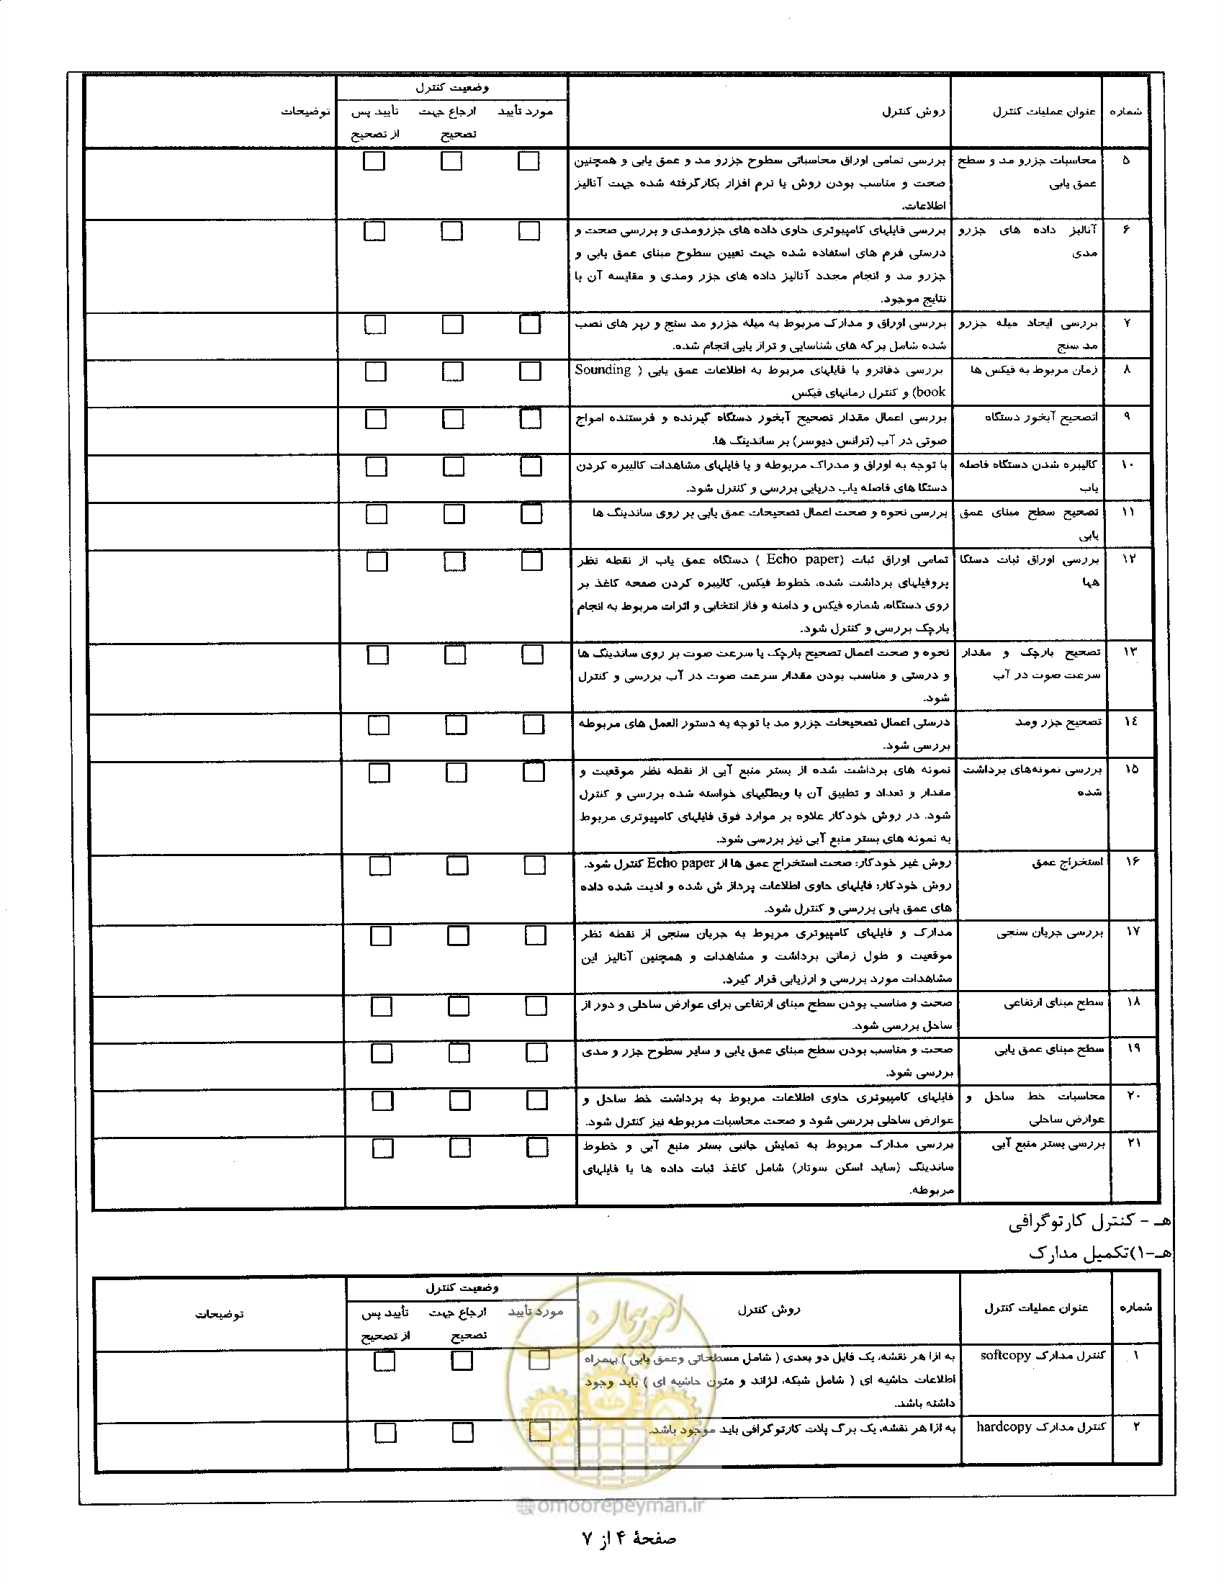 وضعیت کنترل
شماره عنوان عملیات کنترل روش کنترل مورد تأیید ارجاع جهت تأیید پس توضیحات
تصحیح از تصحیح
۵ محاسبات جزرو مد و سطح بررسی تمامی اوراق محاسباتی سطوح جزرو مد و عمق یابی و همچنین
عمق یابی صحت و مناسب بودن روش یا نرم افزار بکارگرفته شده جهت آنالیز
اطلاعات.
۶ آنالیز داده های جزرو بررسی فایلهای کامپیوتری حاوی داده های جزرومدی و بررسی صحت و
مدی درستی فرم های استفاده شده جهت تعیین سطوح مبنای عمق یابی و
جزرو مد و انجام مجدد آنالیز داده های جزر ومدی و مقایسه آن با
نتایج موجود.
۷ بررسی ایجاد میله جزرو بررسی اوراق و مدارک مربوط به میله جزرو مد سنج و رپر های نصب
مد سنج شده شامل برگه های شناسایی و تراز یابی انجام شده.
۸ زمان مربوط به فیکس ها بررسی دفاترو یا فایلهای مربوط به اطلاعات عمق یابی ( Sounding
book) و کنترل زمانهای فیکس
۹ اتصحیح آبخور دستگاه بررسی اعمال مقدار تصحیح آبخور دستگاه گیرنده و فرستنده امواج
صوتی در آب (ترانس دیوسر) بر ساندینگ ها.
۱۰ کالیبره شدن دستگاه فاصله با توجه به اوراق و مدراک مربوطه و یا فایلهای مشاهدات کالیبره کردن
یاب دستگا های فاصله یاب دریایی بررسی و کنترل شود.
۱۱ تصحیح سطح مبنای عمق بررسی نحوه و صحت اعمال تصحیحات عمق یابی بر روی ساندینگ ها
یابی
۱۲ بررسی اوراق ثبات دستگا تمامی اوراق ثبات (Echo paper ) دستگاه عمق یاب از نقطه نظر
هها پروفیلهای برداشت شده، خطوط فیکس، کالیبره کردن صفحه کاغذ بر
روی دستگاه، شماره فیکس و دامنه و فاز انتخابی و اثرات مربوط به انجام
بارچک بررسی و کنترل شود.
۱۳ تصحیح بارچک و مقدار نحوه و صحت اعمال تصحیح بارچک یا سرعت صوت بر روی ساندینگ ها
سرعت صوت در آب و درستی و مناسب بودن مقدار سرعت صوت در آب بررسی و کنترل
شود.
۱٤ تصحیح جزر ومد درستی اعمال تصحیحات جزرو مد با توجه به دستور العمل های مربوطه
بررسی شود.
۱۵ بررسی نمونه‌های برداشت نمونه های برداشت شده از بستر منبع آبی از نقطه نظر موقعیت و
شده مقدار و تعداد و تطبیق آن با ویطگیهای خواسته شده بررسی و کنترل
شود. در روش خودکار علاوه بر موارد فوق فایلهای کامپیوتری مربوط
به نمونه های بستر منبع آبی نیز بررسی شود.
۱۶ استخراج عمق روش غیر خودکار: صحت استخراج عمق ها از Echo paper کنترل شود.
روش خودکار: فایلهای حاوی اطلاعات پرداز ش شده و ادیت شده داده
های عمق یابی بررسی و کنترل شود.
۱۷ بررسی جریان سنجی مدارک و فایلهای کامپیوتری مربوط به جریان سنجی از نقطه نظر
موقعیت و طول زمانی برداشت و مشاهدات و همچنین آنالیز این
مشاهدات مورد بررسی و ارزیابی قرار گیرد.
۱۸ سطح مبنای ارتفاعی صحت و مناسب بودن سطح مبنای ارتفاعی برای عوارض ساحلی و دور از
ساحل بررسی شود.
۱۹ سطح مبنای عمق یابی صحت و مناسب بودن سطح مبنای عمق یابی و سایر سطوح جزر و مدی
بررسی شود.
۲۰ محاسبات خط ساحل و فایلهای کامپیوتری حاوی اطلاعات مربوط به برداشت خط ساحل و
عوارض ساحلی عوارض ساحلی بررسی شود و صحت محاسبات مربوطه نیز کنترل شود.
۲۱ بررسی بستر منبع آبی بررسی مدارک مربوط به نمایش جانبی بستر منبع آبی و خطوط
ساندینگ (ساید اسکن سونار) شامل کاغذ ثبات داده ها یا فایلهای
مربوطه.
هـ - کنترل کارتوگرافی
هـ-۱)تکمیل مدارک
وضعیت کنترل
شماره عنوان عملیات کنترل روش کنترل مورد تأیید ارجاع جهت تأیید پس توضیحات
تصحیح از تصحیح
۱ کنترل مدارک softcopy به ازا هر نقشه، یک فایل دو بعدی ( شامل مسطحاتی وعمق یابی ) بهمراه
اطلاعات حاشیه ای ( شامل شبکه، لژاند و متون حاشیه ای ) باید وجود
داشته باشد.
۲ کنترل مدارک hardcopy به ازا هر نقشه، یک برگ پلات کارتوگرافی باید موجود باشد.
امورپیمان
@omoorepeyman.ir
صفحهٔ ۴ از ۷